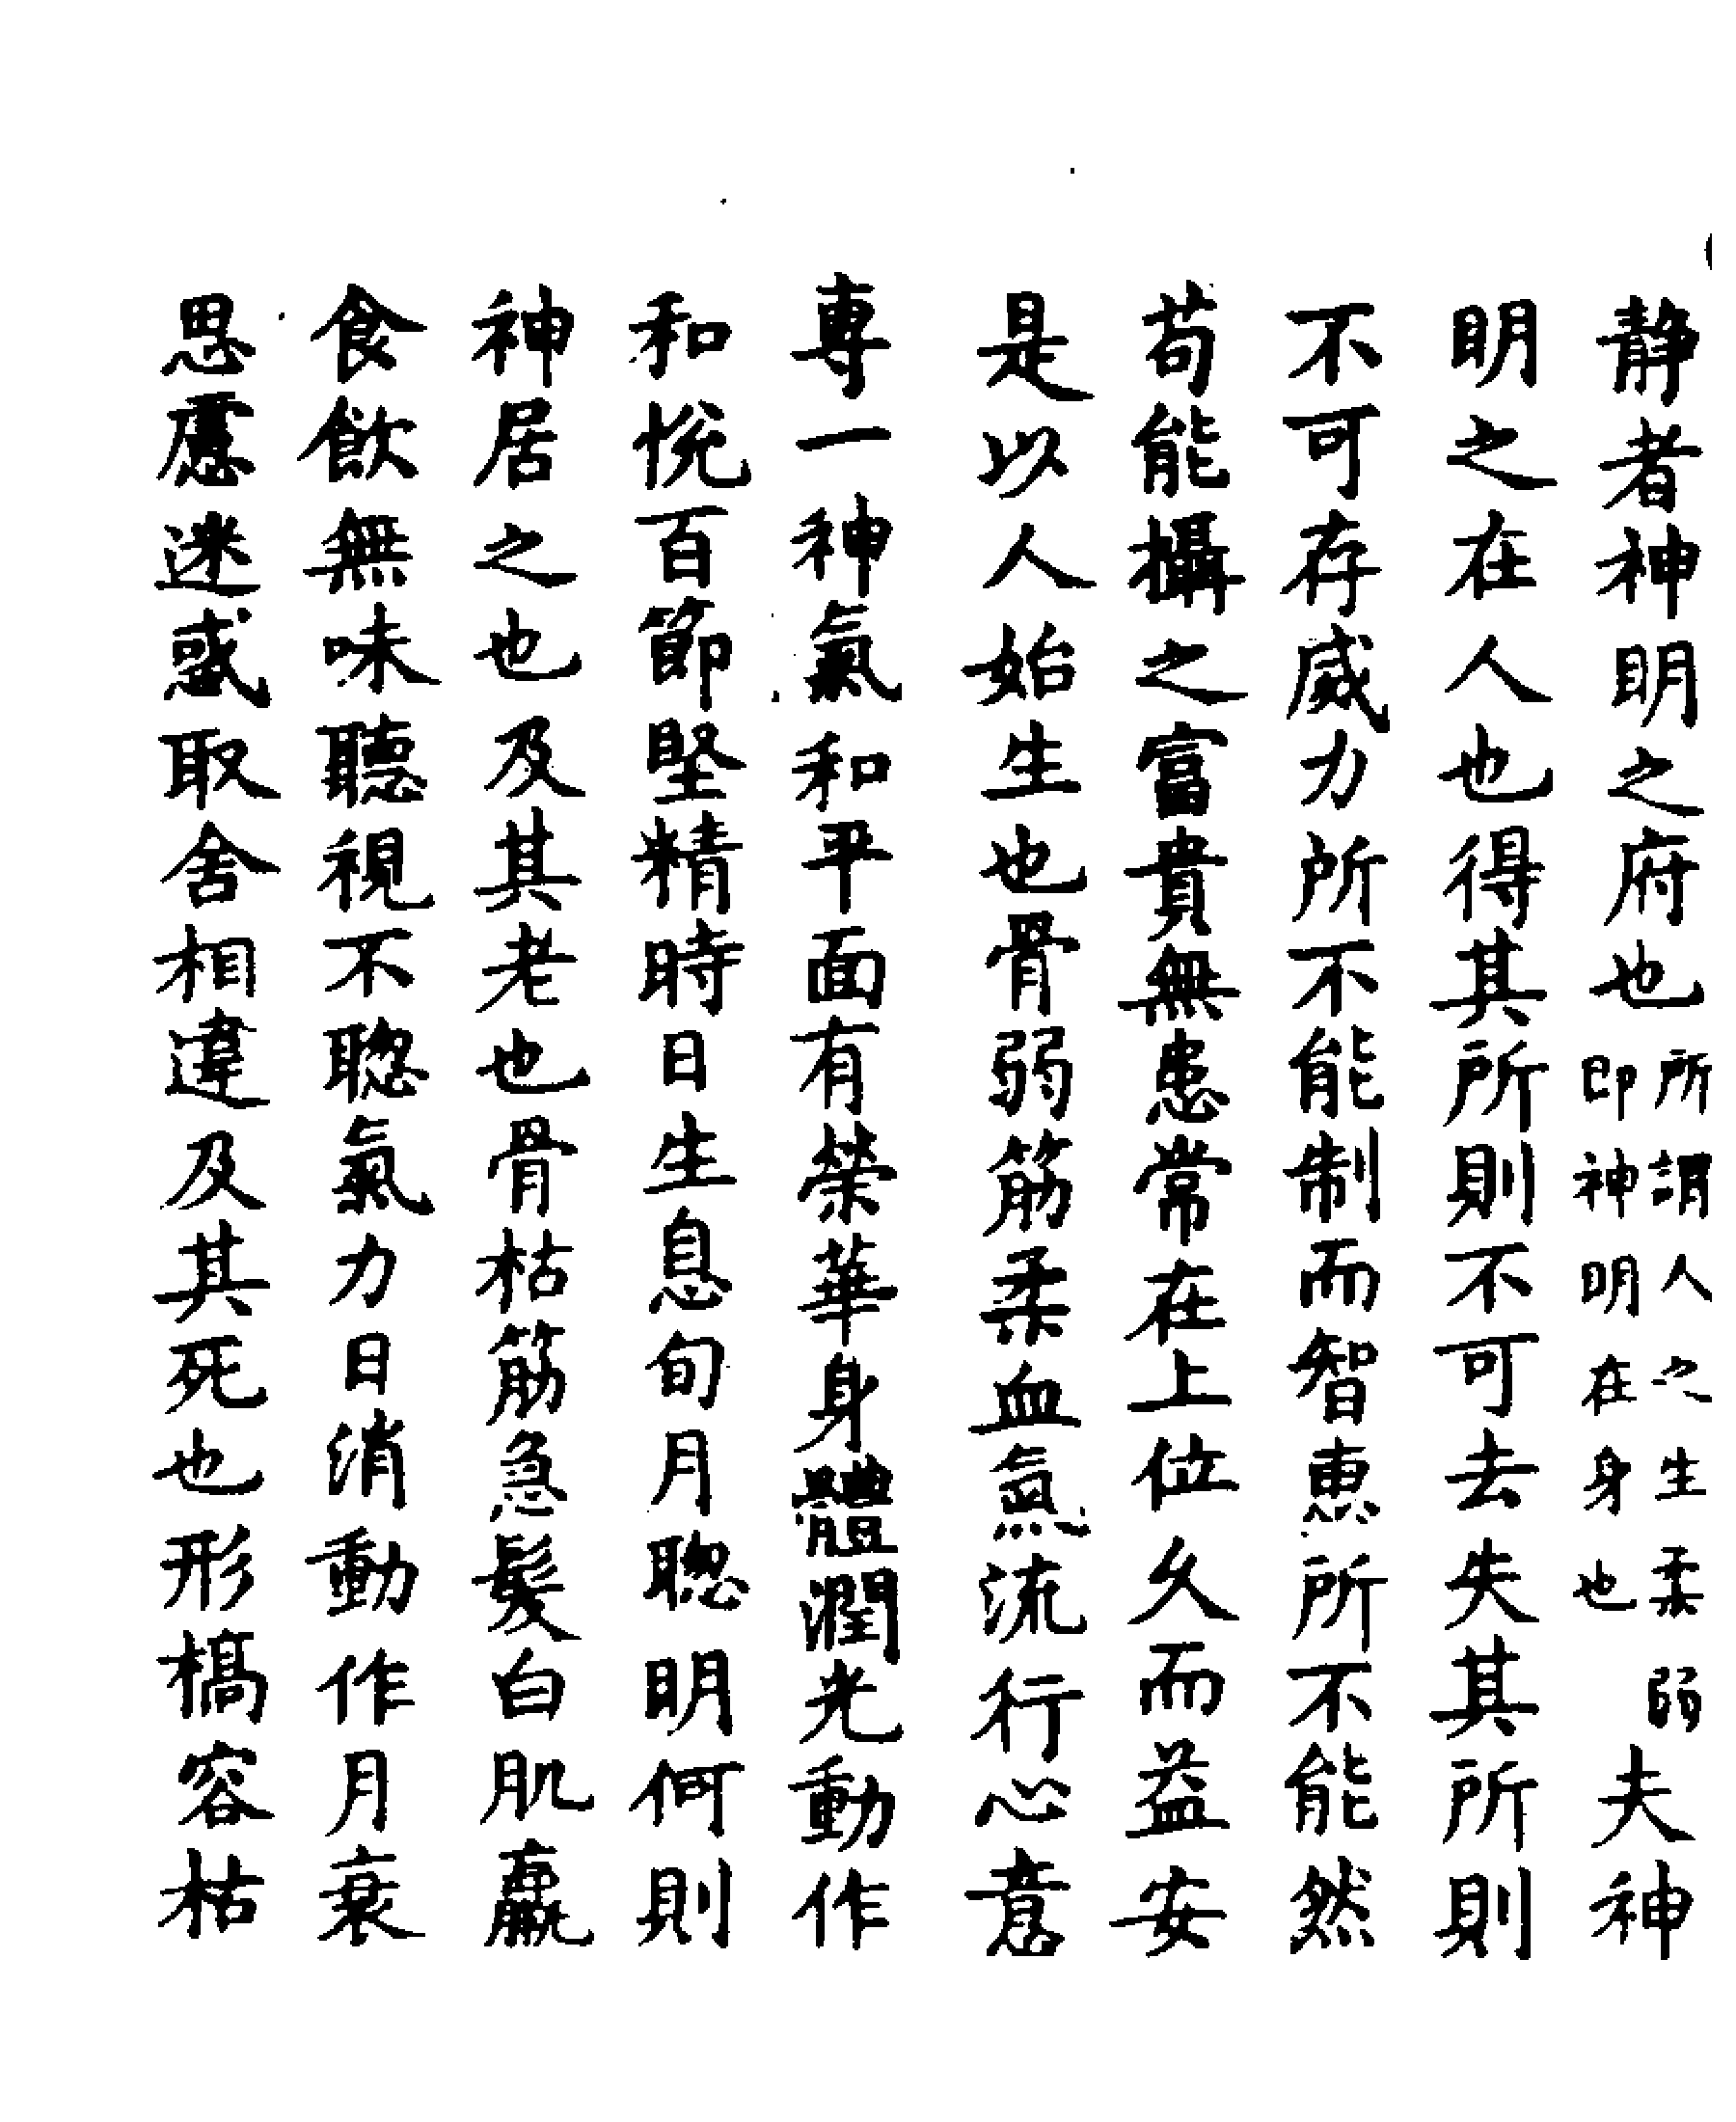 静者神明之府也所謂人之生柔弱即神明在身也夫神
明之在人也得其所則不可去失其所則
不可存威力所不能制而智惠所不能然
苟能攝之富貴無患常在上位久而益安
是以人始生也骨弱筋柔血氣流行心意
專一神氣和平面有榮華身體潤光動作
和悅百節堅精時日生息旬月聡明何則
神居之也及其老也骨枯筋急髮白肌羸
食飲無味聽視不聡氣力日消動作月衰
思慮迷惑取舍相違及其死也形槁容枯